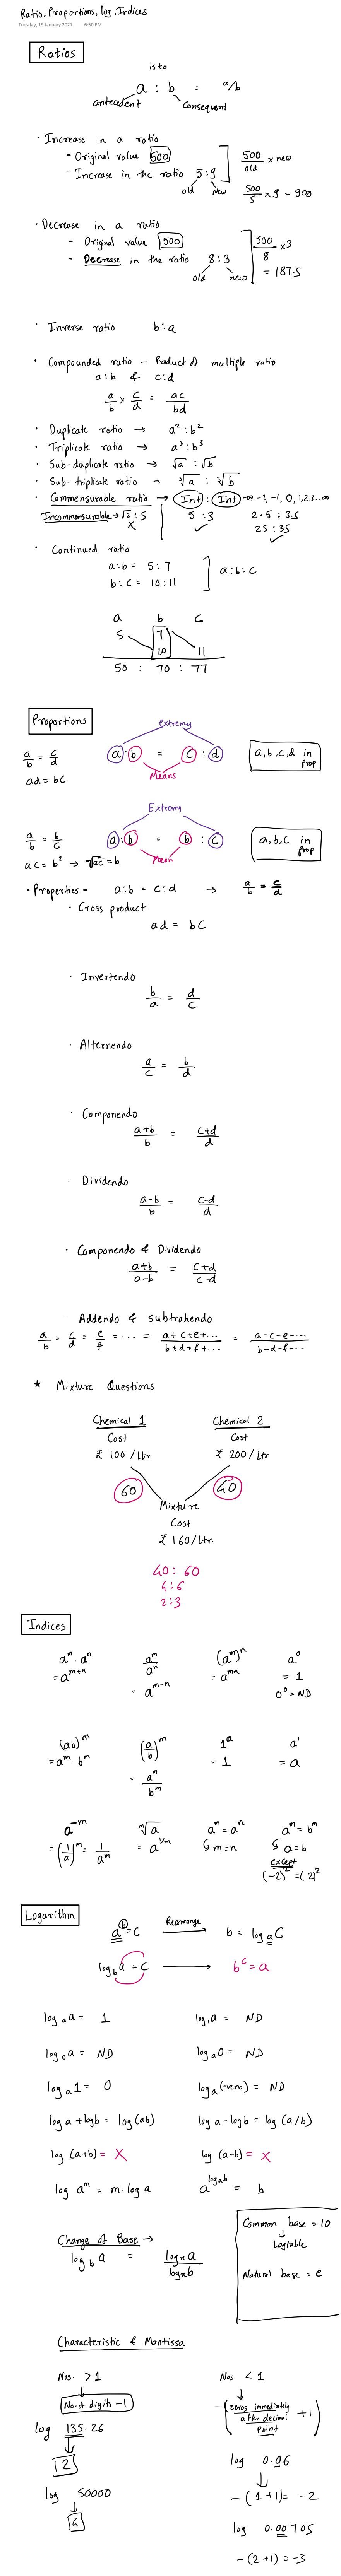 Ratio, Proportions, log, Indices
Tuesday, 19 January 2021 6:50 PM
Ratios
is to
a : b = a/b
antecedent Consequent
· Increase in a ratio
- Original value 500
- Increase in the ratio 5:9
old New
500/old × new
500/5 × 9 = 900
· Decrease in a ratio
- Original value 500
- Decrease in the ratio 8:3
old new
500/8 × 3
= 187.5
· Inverse ratio b:a
· Compounded ratio - Product of multiple ratio
a:b & c:d
a/b × c/d = ac/bd
· Duplicate ratio → a² : b²
· Triplicate ratio → a³ : b³
· Sub-duplicate ratio → √a : √b
· Sub-triplicate ratio → ∛a : ∛b
· Commensurable ratio → Int : Int -∞..-2, -1, 0, 1,2,3...∞
Incommensurable → √2 : 5
X
5 : 3
✓
2.5 : 3.5
25 : 35
✓
· Continued ratio
a:b = 5:7
b:c = 10:11
a:b:c
a b c
5 7
10 11
50 : 70 : 77
Proportions
extremes
a/b = c/d
a : b = c : d
a,b,c,d in prop
ad = bc
Means
Extremes
a/b = b/c
a : b = b : c
a,b,c in prop
ac = b² → √ac = b
Mean
· Properties - a:b = c:d → a/b = c/d
· Cross product
ad = bc
· Invertendo
b/a = d/c
· Alternendo
a/c = b/d
· Componendo
a+b/b = c+d/d
· Dividendo
a-b/b = c-d/d
· Componendo & Dividendo
a+b/a-b = c+d/c-d
· Addendo & subtrahendo
a/b = c/d = e/f = ... = a+c+e+.../b+d+f+... = a-c-e-.../b-d-f-...
* Mixture Questions
Chemical 1 Chemical 2
Cost Cost
₹ 100 /Ltr ₹ 200 / Ltr
60 40
Mixture
Cost
₹ 160/Ltr.
40 : 60
4 : 6
2 : 3
Indices
aᵐ · aⁿ = aᵐ⁺ⁿ
aᵐ/aⁿ = aᵐ⁻ⁿ
(aᵐ)ⁿ = aᵐⁿ
a⁰ = 1
0⁰ = ND
(ab)ᵐ = aᵐ · bᵐ
(a/b)ᵐ = aᵐ/bᵐ
1ᵃ = 1
a¹ = a
a⁻ᵐ = (1/a)ᵐ = 1/aᵐ
ᵐ√a = a^1/m
aᵐ = aⁿ
↳ m = n
aᵐ = bᵐ
↳ a = b
except
(-2)² = (2)²
Logarithm
aᵇ = c Rearrange → b = logₐ c
log_b a = c → bᶜ = a
logₐ a = 1 log₁ a = ND
log₀ a = ND logₐ 0 = ND
logₐ 1 = 0 logₐ (-ve no) = ND
log a + log b = log (ab) log a - log b = log (a/b)
log (a+b) = X log (a-b) = X
log aᵐ = m. log a a^logₐb = b
Change of Base →
log_b a = logₓ a/logₓ b
Common base = 10
↓
Logtable
Natural base = e
Characteristic & Mantissa
Nos. > 1 Nos < 1
No. of digits - 1
- (zeros immediately after decimal point + 1)
log 135.26
2
log 0.06
- (1+1) = -2
log 50000
4
log 0.00705
- (2+1) = -3